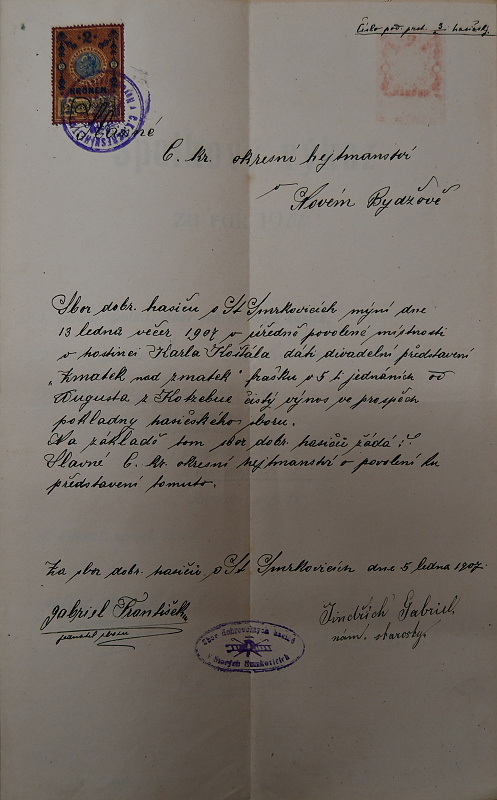 Číslo pod. prot. 3. hasičský.
2
KRONEN
Slavné
C. kr. okresní hejtmanství
v
Novém Bydžově
Sbor dobr. hasičů v St. Smrkovicích míní dne
13 ledna večer 1907 v úředně povolené místnosti
v hostinci Karla Košťála dáti divadelní představení
"Zmatek nad zmatek" frašku o 5 ti jednáních od
Augusta z Kotzebue čistý výnos ve prospěch
pokladny hasičského sboru.
Na základě tom sbor dobr. hasičů žádá:
Slavné C. kr. okresní hejtmanství o povolení ku
představení tomuto.
Za sbor dobr. hasičů v St. Smrkovicích dne 5 ledna 1907.
Gabriel František
Jindřich Gabriel
nám. starosty.
Sbor dobrovolných hasičů
v Starých Smrkovicích